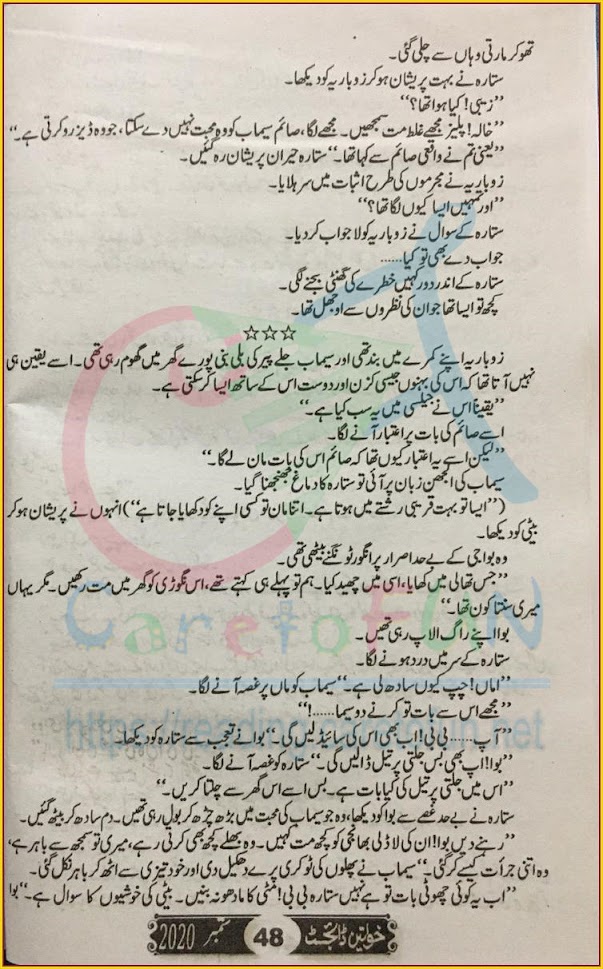 ٹھوکر مارتی وہاں سے چلی گئی۔
ستارہ نے بہت پریشان ہو کر زوباریہ کو دیکھا۔
’’زیبی! کیا ہوا تھا؟‘‘
’’خالہ! پلیز مجھے غلط مت سمجھیں۔ مجھے لگا، صائم سیماب کو وہ محبت نہیں دے سکتا، جو وہ ڈیزرو کرتی ہے۔‘‘
’’یعنی تم نے واقعی صائم سے کہا تھا۔‘‘ ستارہ حیران پریشان رہ گئیں۔
زوباریہ نے مجرموں کی طرح اثبات میں سر ہلایا۔
’’اور تمہیں ایسا کیوں لگا تھا؟‘‘
ستارہ کے سوال نے زوباریہ کو لاجواب کر دیا۔
جواب دے بھی تو کیا......
ستارہ کے اندر دور کہیں خطرے کی گھنٹی بجنے لگی۔
کچھ تو ایسا تھا جو ان کی نظروں سے اوجھل تھا۔
☆☆☆
زوباریہ اپنے کمرے میں بند تھی اور سیماب جلے پیر کی بلی بنی پورے گھر میں گھوم رہی تھی۔ اسے یقین ہی
نہیں آتا تھا کہ اس کی بہنوں جیسی کزن اور دوست اس کے ساتھ ایسا کر سکتی ہے۔
’’یقیناً اس نے جیلسی میں یہ سب کیا ہے۔‘‘
اسے صائم کی بات پر اعتبار آنے لگا۔
’’لیکن اسے یہ اعتبار کیوں تھا کہ صائم اس کی بات مان لے گا۔‘‘
سیماب کی الجھن زبان پر آئی تو ستارہ کا دماغ جھنجھنا گیا۔
(’’ایسا تو بہت قریبی رشتے میں ہوتا ہے۔ اتنا مان تو کسی اپنے کو دکھایا جاتا ہے‘‘) انہوں نے پریشان ہو کر
بیٹی کو دیکھا۔
وہ بوا جی کے بے حد اصرار پر انگور ٹونگنے بیٹھی تھی۔
’’جس تھالی میں کھایا، اسی میں چھید کیا۔ ہم تو پہلے ہی کہتے تھے، اس نگوڑی کو گھر میں مت رکھیں۔ مگر یہاں
میری سنتا کون تھا۔‘‘
بوا اپنے راگ الاپ رہی تھیں۔
ستارہ کے سر میں درد ہونے لگا۔
’’اماں! چپ کیوں سادھ لی ہے۔‘‘ سیماب کو ماں پر غصہ آنے لگا۔
’’مجھے اس سے بات تو کرنے دو سیما......!‘‘
’’آپ...... بی بی! اب بھی اس کی سائیڈ لیں گی۔‘‘ بوا نے تعجب سے ستارہ کو دیکھا۔
’’بوا! آپ بھی بس جلتی پر تیل ڈالیں گی۔‘‘ ستارہ کو غصہ آنے لگا۔
’’اس میں جلتی پر تیل کی کیا بات ہے۔ بس اسے اس گھر سے چلتا کریں۔‘‘
ستارہ نے بے حد غصے سے بوا کو دیکھا، وہ جو سیماب کی محبت میں بڑھ چڑھ کر بول رہی تھیں۔ دم سادھ کر بیٹھ گئیں۔
’’رہنے دیں بوا! ان کی لاڈلی بھانجی کو کچھ مت کہیں۔ وہ بھلے کچھ بھی کرتی رہے، میری تو سمجھ سے باہر ہے،
وہ اتنی جرأت کیسے کر گئی۔‘‘ سیماب نے پھلوں کی ٹوکری پرے دھکیل دی اور خود تیزی سے اٹھ کر باہر نکل گئی۔
’’اب یہ کوئی چھوٹی بات تو ہے نہیں ستارہ بی بی! مٹی کا مادھو نہ بنیں۔ بیٹی کی خوشیوں کا سوال ہے۔‘‘ بوا
خواتین ڈائجسٹ 48 ستمبر 2020
CaretoFUN